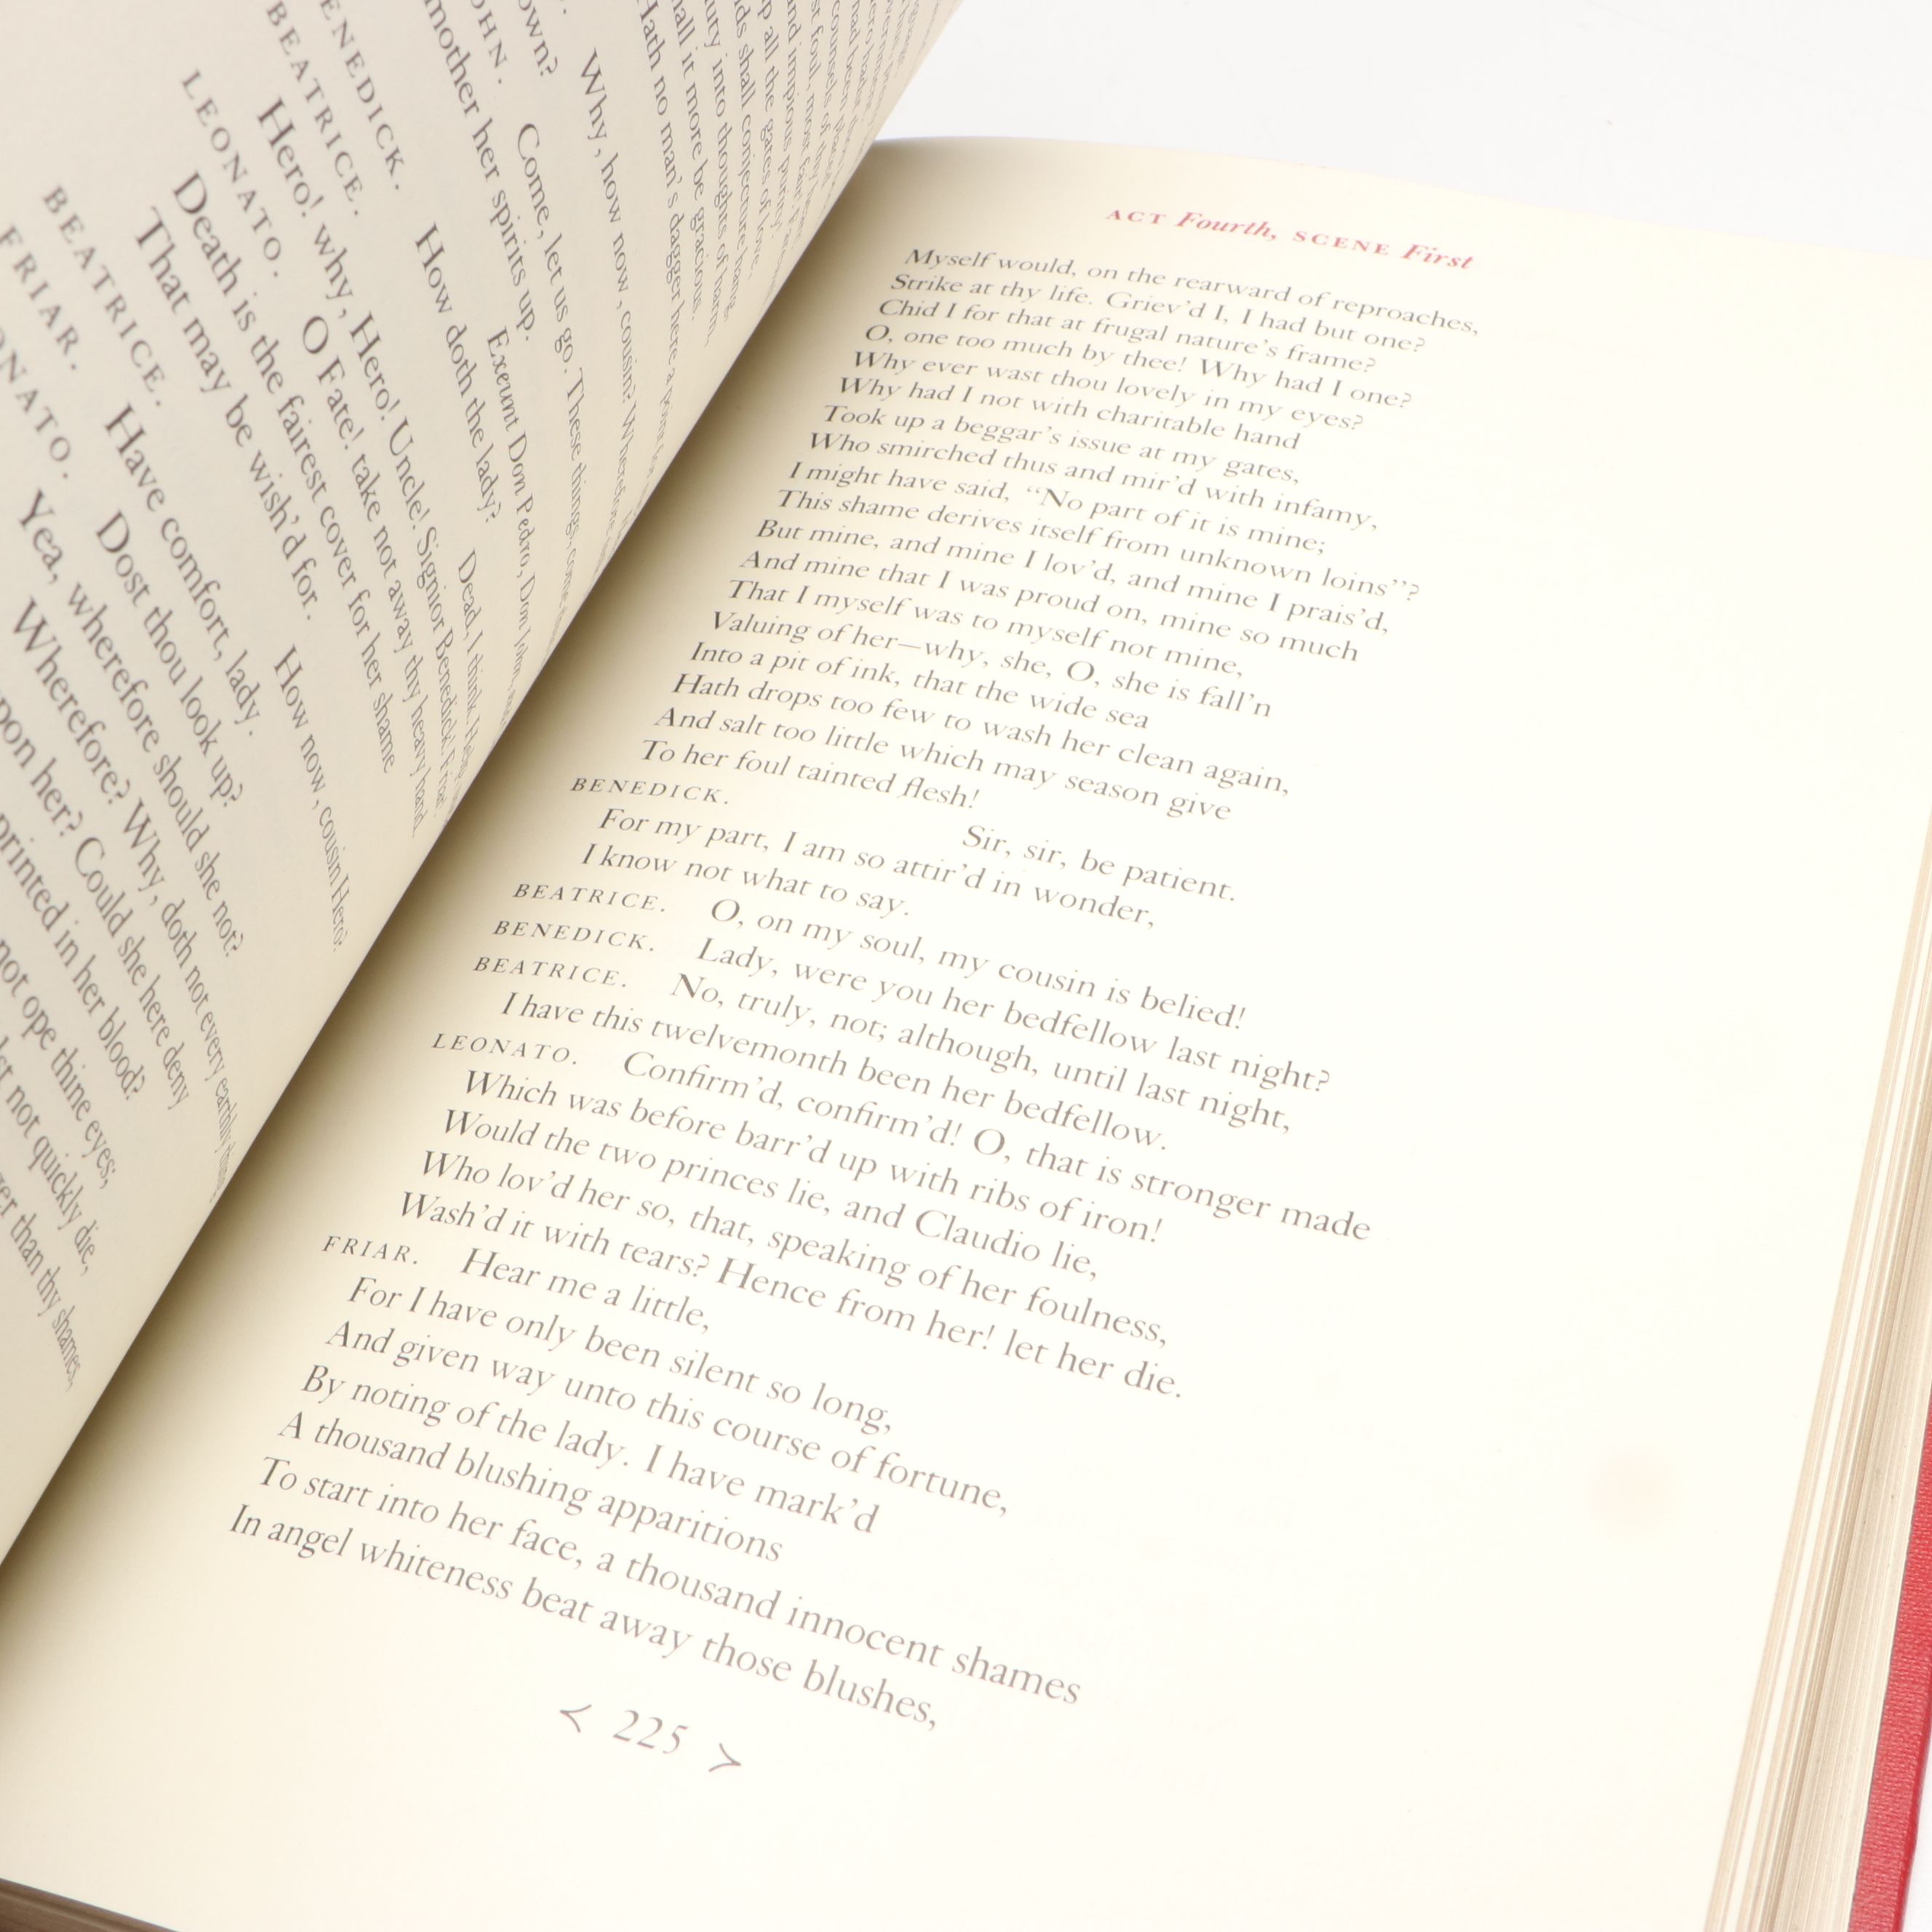 own?
JOHN. Come, let us go. These things, come
mother her spirits up.
Exeunt Don Pedro, Don John, and
BENEDICK. How doth the lady?
BEATRICE. Dead, I think. Help
Hero! why, Hero! Uncle! Signior Benedick! Friar!
LEONATO. O Fate! take not away thy heavy hand.
Death is the fairest cover for her shame
That may be wish'd for.
BEATRICE. How now, cousin Hero?
FRIAR. Have comfort, lady.
ONATO. Dost thou look up?
Yea, wherefore should she not?
Wherefore? Why, doth not every earthly thing
pon her? Could she here deny
printed in her blood?
not ope thine eyes;
not quickly die,
than thy shames,
Why, how now, cousin? Wherefore
Hath no man's dagger here a point for
hall it more be gracious.
auty into thoughts of harm,
ds shall conjecture hang,
p all the gates of love,
ACT Fourth, SCENE First
Myself would, on the rearward of reproaches,
Strike at thy life. Griev'd I, I had but one?
Chid I for that at frugal nature's frame?
O, one too much by thee! Why had I one?
Why ever wast thou lovely in my eyes?
Why had I not with charitable hand
Took up a beggar's issue at my gates,
Who smirched thus and mir'd with infamy,
I might have said, “No part of it is mine;
This shame derives itself from unknown loins”?
But mine, and mine I lov'd, and mine I prais'd,
And mine that I was proud on, mine so much
That I myself was to myself not mine,
Valuing of her—why, she, O, she is fall'n
Into a pit of ink, that the wide sea
Hath drops too few to wash her clean again,
And salt too little which may season give
To her foul tainted flesh!
BENEDICK. Sir, sir, be patient.
For my part, I am so attir'd in wonder,
I know not what to say.
BEATRICE. O, on my soul, my cousin is belied!
BENEDICK. Lady, were you her bedfellow last night?
BEATRICE. No, truly, not; although, until last night,
I have this twelvemonth been her bedfellow.
LEONATO. Confirm'd, confirm'd! O, that is stronger made
Which was before barr'd up with ribs of iron!
Would the two princes lie, and Claudio lie,
Who lov'd her so, that, speaking of her foulness,
Wash'd it with tears? Hence from her! let her die.
FRIAR. Hear me a little,
For I have only been silent so long,
And given way unto this course of fortune,
By noting of the lady. I have mark'd
A thousand blushing apparitions
To start into her face, a thousand innocent shames
In angel whiteness beat away those blushes,
< 225 >